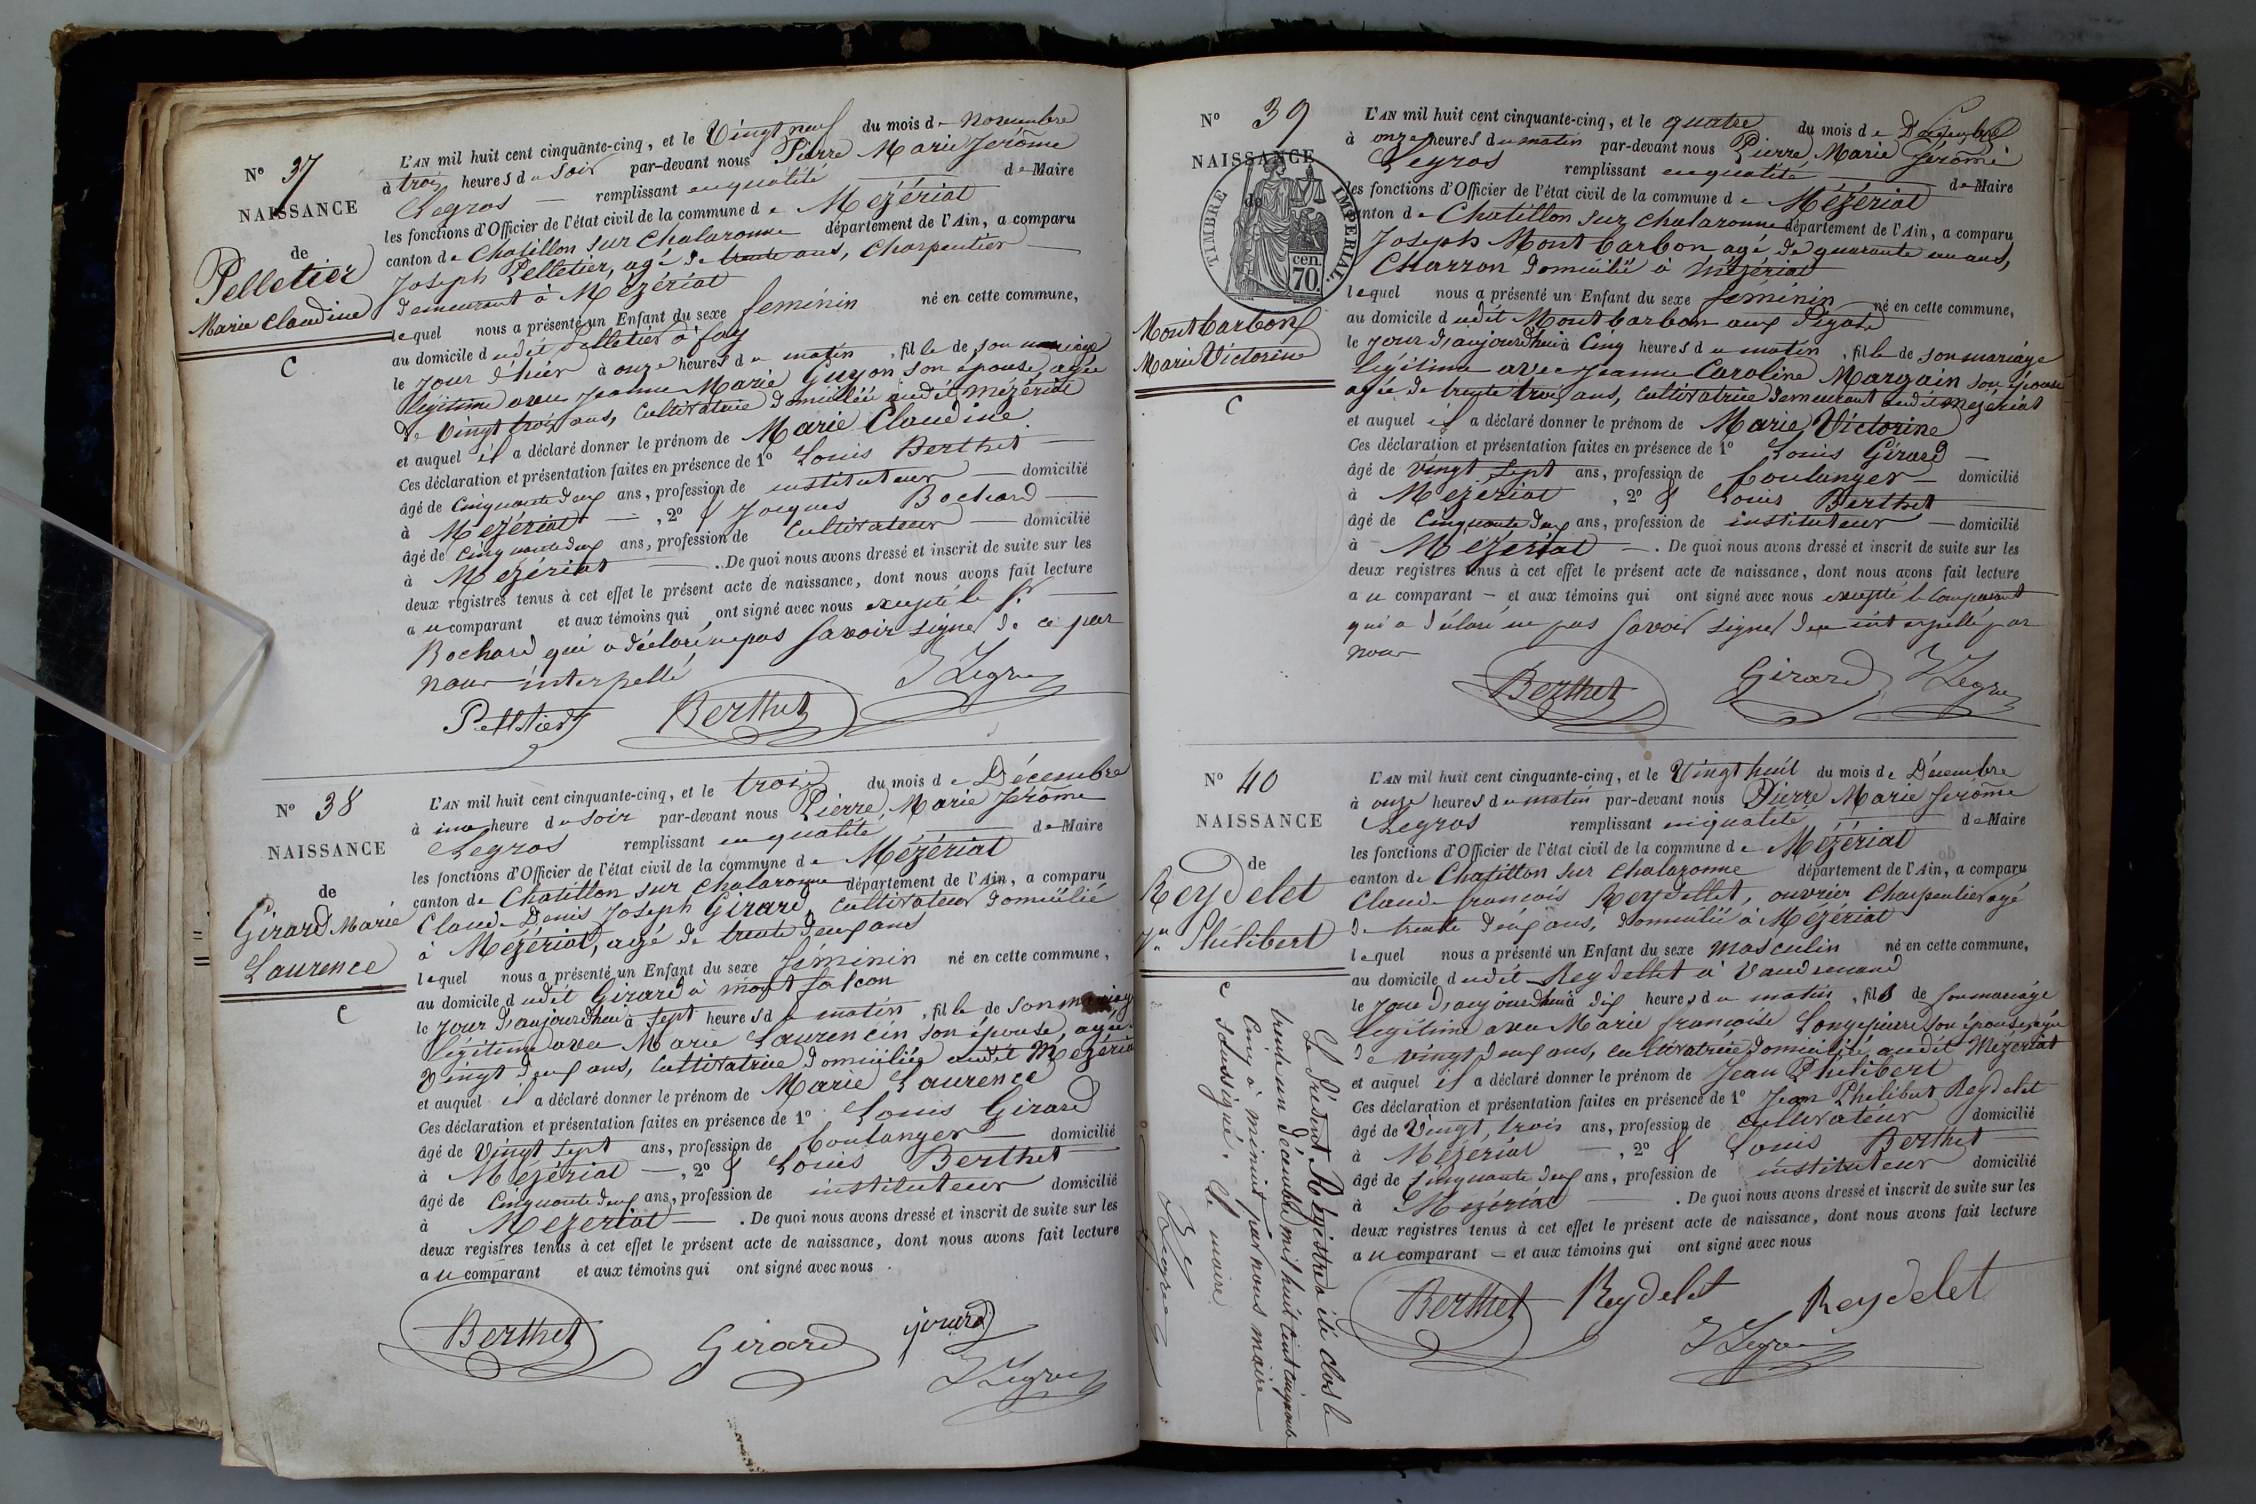 N° 37
NAISSANCE
de
Pelletier
Marie Claudine
C
L'AN mil huit cent cinquante-cinq, et le Vingt neuf du mois de Novembre
à trois heures du soir par-devant nous Pierre Marie Jérôme
Legros — remplissant en qualité — de Maire
les fonctions d'Officier de l'état civil de la commune de Mézériat
canton de Chatillon sur Chalaronne département de l'Ain, a comparu
Joseph Pelletier, agé de trente ans, Charpentier
demeurant à Mézériat
lequel nous a présenté un Enfant du sexe féminin né en cette commune,
au domicile dudit Pelletier à fay
le jour d'hier à onze heures du matin, fille de son mariage
légitime avec Jeanne Marie Guyon son épouse, agée
de Vingt trois ans, Cultivatrice domiciliée audit Mézériat
et auquel il a déclaré donner le prénom de Marie Claudine
Ces déclaration et présentation faites en présence de 1° Louis Berthet
âgé de Cinquante deux ans, profession de instituteur — domicilié
à Mézériat —, 2° & Jacques Bochard —
âgé de Cinquante deux ans, profession de Cultivateur — domicilié
à Mézériat —. De quoi nous avons dressé et inscrit de suite sur les
deux registres tenus à cet effet le présent acte de naissance, dont nous avons fait lecture
au comparant et aux témoins qui ont signé avec nous excepté le Sr
Bochard qui a déclaré ne pas savoir signer de ce par
nous interpellé
Pelletier Berthet J Legros
N° 38
NAISSANCE
de
Girard Marie
Laurence
C
L'AN mil huit cent cinquante-cinq, et le trois du mois de Décembre
à une heure du soir par-devant nous Pierre, Marie Jérôme
Legros remplissant en qualité — de Maire
les fonctions d'Officier de l'état civil de la commune de Mézériat
canton de Chatillon sur Chalaronne département de l'Ain, a comparu
Claude Denis Joseph Girard, Cultivateur domicilié
à Mézériat, agé de trente deux ans
lequel nous a présenté un Enfant du sexe féminin né en cette commune,
au domicile dudit Girard à montfalcon
le jour d'aujourdhui à sept heures du matin, fille de son mariage
légitime avec Marie Laurencin son épouse, agée
Vingt deux ans, Cultivatrice domiciliée audit Mézériat
et auquel il a déclaré donner le prénom de Marie Laurence
Ces déclaration et présentation faites en présence de 1° Louis Girard
âgé de Vingt sept ans, profession de boulanger — domicilié
à Mézériat —, 2° & Louis Berthet
âgé de Cinquante deux ans, profession de instituteur domicilié
à Mézériat —. De quoi nous avons dressé et inscrit de suite sur les
deux registres tenus à cet effet le présent acte de naissance, dont nous avons fait lecture
au comparant et aux témoins qui ont signé avec nous.
Berthet Girard girard
J Legros
N° 39
NAISSANCE
de
TIMBRE IMPERIAL.
70 cen.
Montbarbon
Marie Victorine
C
L'AN mil huit cent cinquante-cinq, et le quatre du mois de Décembre
à onze heures du matin par-devant nous Pierre Marie Jérôme
Legros remplissant en qualité — de Maire
les fonctions d'Officier de l'état civil de la commune de Mézériat
canton de Chatillon sur Chalaronne département de l'Ain, a comparu
Joseph Montbarbon agé de quarante un ans,
Charron domicilié à Mézériat
lequel nous a présenté un Enfant du sexe féminin né en cette commune,
au domicile dudit Montbarbon aux
le jour d'aujourdhui à Cinq heures du matin, fille de son mariage
légitime avec Jeanne Caroline Margain son épouse
agée de trente trois ans, Cultivatrice demeurant audit Mézériat
et auquel il a déclaré donner le prénom de Marie Victorine
Ces déclaration et présentation faites en présence de 1° Louis Girard —
âgé de vingt sept ans, profession de boulanger — domicilié
à Mézériat, 2° & Louis Berthet
âgé de Cinquante deux ans, profession de instituteur — domicilié
à Mézériat —. De quoi nous avons dressé et inscrit de suite sur les
deux registres tenus à cet effet le présent acte de naissance, dont nous avons fait lecture
au comparant — et aux témoins qui ont signé avec nous excepté le comparant
qui a déclaré ne pas savoir signer de ce interpellé par
nous
Berthet Girard J Legros
N° 40
NAISSANCE
de
Reydelet
Jn Philibert
C
L'AN mil huit cent cinquante-cinq, et le Vingt huit du mois de Décembre
à onze heures du matin par-devant nous Pierre Marie Jérôme
Legros remplissant en qualité — de Maire
les fonctions d'Officier de l'état civil de la commune de Mézériat
canton de Chatillon sur Chalaronne département de l'Ain, a comparu
Claude françois Reydellet, ouvrier Charpentier agé
de trente deux ans, domicilié à Mézériat
lequel nous a présenté un Enfant du sexe masculin né en cette commune,
au domicile dudit Reydellet à Vaudrenand
le jour d'aujourdhui à dix heures du matin, fils de son mariage
légitime avec Marie françoise Longepierre son épouse, agée
de vingt deux ans, cultivatrice domiciliée audit Mézériat
et auquel il a déclaré donner le prénom de Jean Philibert
Ces déclaration et présentation faites en présence de 1° Jean Philibert Reydelet
âgé de Vingt, trois ans, profession de cultivateur domicilié
à Mézériat —, 2° & Louis Berthet
âgé de Cinquante deux ans, profession de instituteur domicilié
à Mézériat —. De quoi nous avons dressé et inscrit de suite sur les
deux registres tenus à cet effet le présent acte de naissance, dont nous avons fait lecture
au comparant — et aux témoins qui ont signé avec nous
Berthet Reydelet Reydelet
J Legros
Le Présent Régistre a été clos le
trente un décembre mil huit cent cinquante
Cinq à minuit par nous maire
soussigné. Le maire.
J Legros